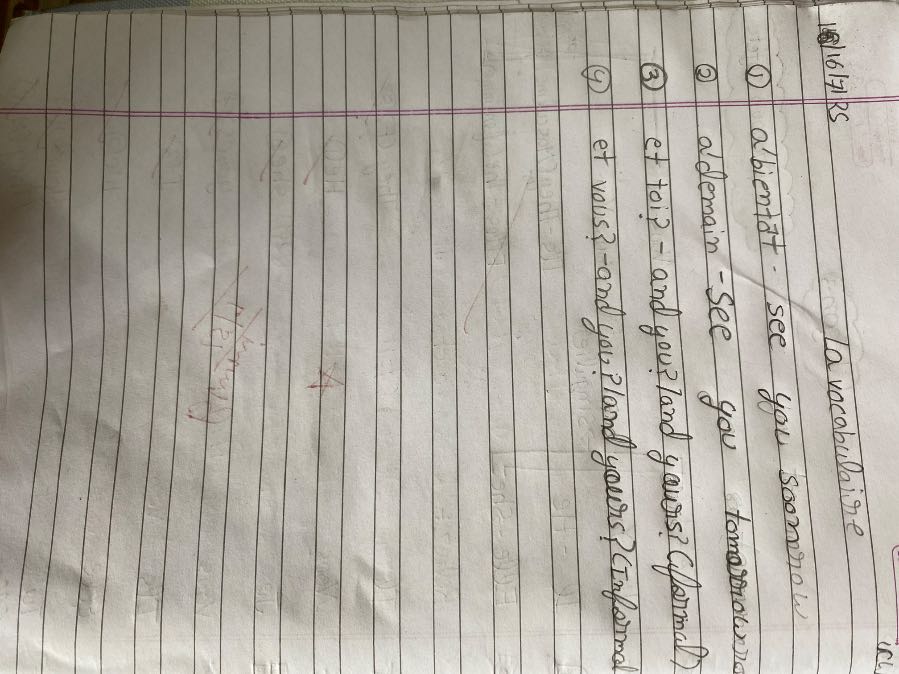 16/7/25
la vocabulaire
① a'bientôt - see you soon
② a'demain - See you tomorrow
③ et toi? - and you?/and yours? (formal)
④ et vous? - and you?/and yours? (Informal